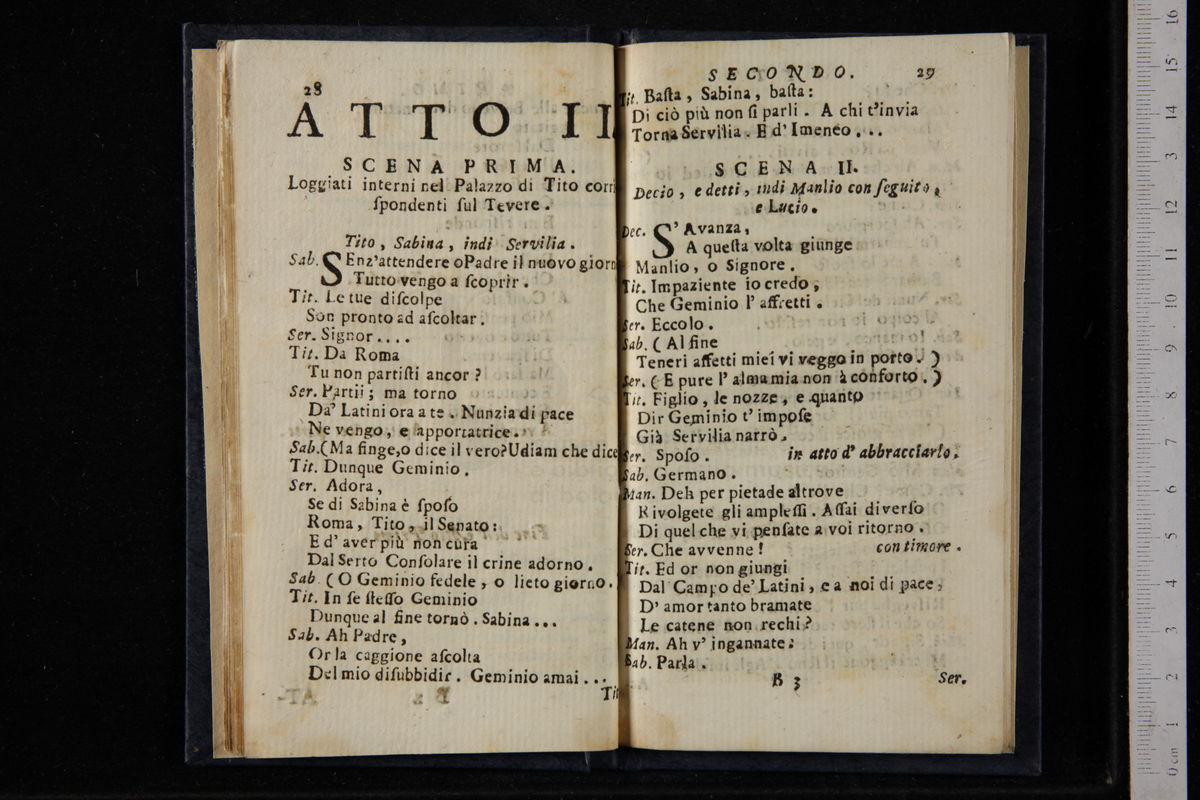 28
ATTO II
SCENA PRIMA.
Loggiati interni nel Palazzo di Tito corri
ſpondenti ſul Tevere.
Tito, Sabina, indi Servilia.
Sab. SEnz'attendere o Padre il nuovo giorn
Tutto vengo a ſcoprir.
Tit. Le tue diſcolpe
Son pronto ad aſcoltar.
Ser. Signor....
Tit. Da Roma
Tu non partiſti ancor?
Ser. Partii; ma torno
Da' Latini ora a te. Nunzia di pace
Ne vengo, e apportatrice.
Sab. (Ma finge, o dice il vero? Udiam che dice
Tit. Dunque Geminio.
Ser. Adora,
Se di Sabina è ſpoſo
Roma, Tito, il Senato:
E d'aver più non cura
Dal Serto Conſolare il crine adorno.
Sab. (O Geminio fedele, o lieto giorno.
Tit. In ſe ſteſſo Geminio
Dunque al fine tornò. Sabina...
Sab. Ah Padre,
Or la caggione aſcolta
Del mio diſubbidir. Geminio amai...
Tit
SECONDO. 29
Tit. Baſta, Sabina, baſta:
Di ciò più non ſi parli. A chi t'invia
Torna Servilia. E d'Imeneo...
SCENA II.
Decio, e detti, indi Manlio con ſeguito,
e Lucio.
Dec. S'Avanza,
A queſta volta giunge
Manlio, o Signore.
Tit. Impaziente io credo,
Che Geminio l'affretti.
Ser. Eccolo.
Sab. (Al fine
Teneri affetti miei vi veggo in porto.)
Ser. (E pure l'alma mia non à conforto.)
Tit. Figlio, le nozze, e quanto
Dir Geminio t'impoſe
Già Servilia narrò.
Ser. Spoſo. in atto d'abbracciarlo.
Sab. Germano.
Man. Deh per pietade altrove
Rivolgete gli ampleſſi. Aſſai diverſo
Di quel che vi penſate a voi ritorno.
Ser. Che avvenne! con timore.
Tit. Ed or non giungi
Dal Campo de' Latini, e a noi di pace,
D'amor tanto bramate
Le catene non rechi?
Man. Ah v'ingannate:
Sab. Parla.
B 3 Ser.
0 cm 1 2 3 4 5 6 7 8 9 10 11 12 13 14 15 16